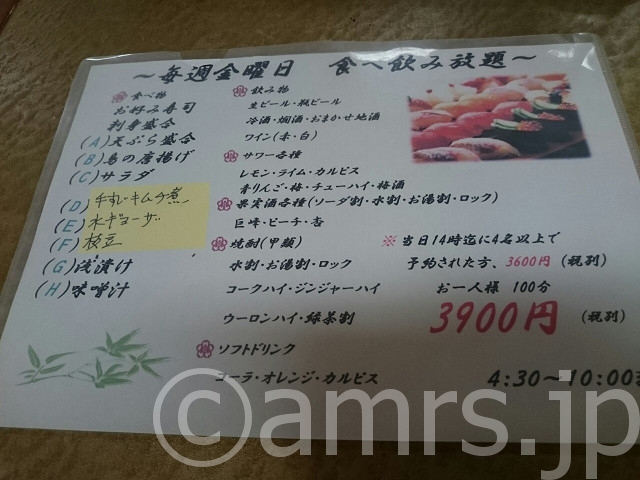 ～毎週金曜日 食べ飲み放題～
食べ物
お好み寿司
刺身盛合
(A)天ぷら盛合
(B)鳥の唐揚げ
(C)サラダ
(D)牛すじキムチ煮
(E)水ギョーザ
(F)枝豆
(G)浅漬け
(H)味噌汁
飲み物
生ビール・瓶ビール
冷酒・燗酒・おまかせ地酒
ワイン(赤・白)
サワー各種
レモン・ライム・カルピス
青りんご・梅・チューハイ・梅酒
果実酒各種(ソーダ割・水割・お湯割・ロック)
巨峰・ピーチ・杏
焼酎(甲類)
水割・お湯割・ロック
コークハイ・ジンジャーハイ
ウーロンハイ・緑茶割
ソフトドリンク
コーラ・オレンジ・カルピス
※ 当日14時迄に4名以上で
予約された方、3600円(税別)
お一人様 100分
3900円 (税別)
4:30～10:00
©amrs.jp